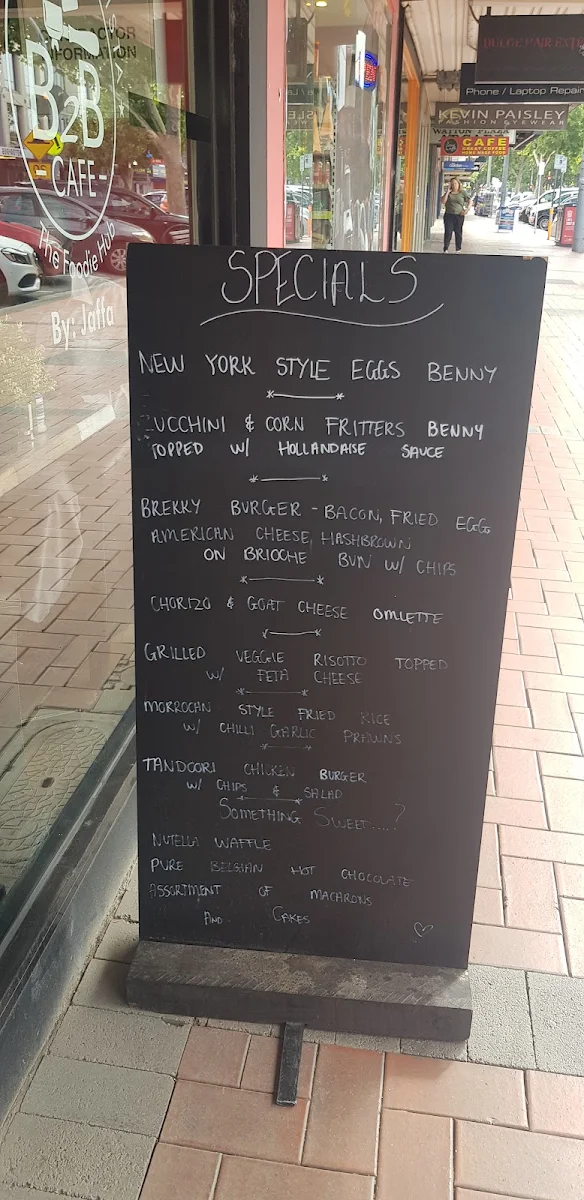 CONTRACTOR
INFORMATION
B2B
CAFE-
The Foodie Hub
By: Jaffa
DULGE HAIR EXT
Phone / Laptop Repair
KEVIN PAISLEY
FASHION EYEWEAR
WATTON PLAZA
CAFE
SPECIALS
NEW YORK STYLE EGGS BENNY
ZUCCHINI & CORN FRITTERS BENNY
TOPPED W/ HOLLANDAISE SAUCE
BREKKY BURGER - BACON, FRIED EGG
AMERICAN CHEESE, HASHBROWN
ON BRIOCHE BUN W/ CHIPS
CHORIZO & GOAT CHEESE OMLETTE
GRILLED VEGGIE RISOTTO TOPPED
W/ FETA CHEESE
MORROCAN STYLE FRIED RICE
W/ CHILLI GARLIC PRAWNS
TANDOORI CHICKEN BURGER
W/ CHIPS & SALAD
SOMETHING SWEET....?
NUTELLA WAFFLE
PURE BELGIAN HOT CHOCOLATE
ASSORTMENT OF MACARONS
AND CAKES